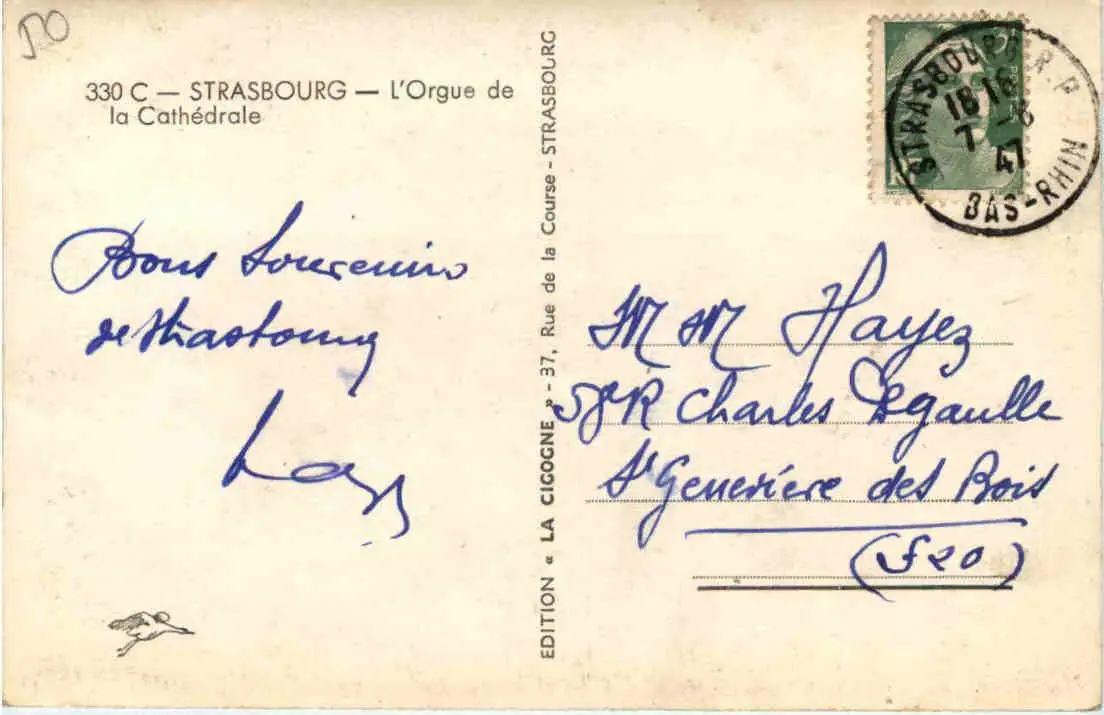 330 C — STRASBOURG — L'Orgue de
la Cathédrale
Bons Souvenirs
de Strasbourg
EDITION « LA CIGOGNE » - 37, Rue de la Course - STRASBOURG
STRASBOURG R.P
18 16
7 -6
47
BAS-RHIN
M M Hayez
58 R Charles Degaulle
St Geneviève des Bois
(S & O)